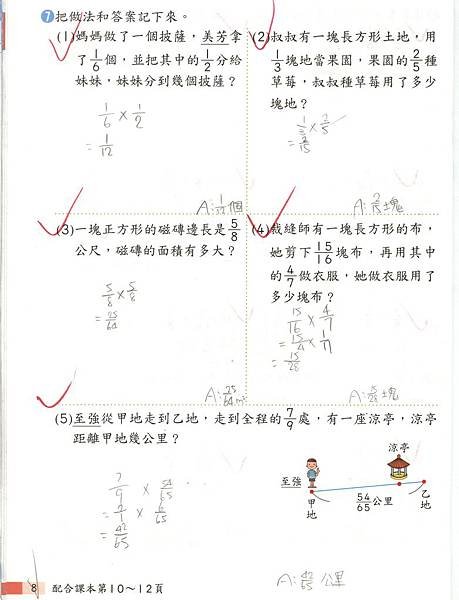 7 把做法和答案記下來。
(1)媽媽做了一個披薩，美芳拿
了1/6個，並把其中的1/2分給
妹妹，妹妹分到幾個披薩？
1/6 × 1/2
= 1/12
A: 1/12個
(2)叔叔有一塊長方形土地，用
1/3塊地當果園，果園的2/5種
草莓，叔叔種草莓用了多少
塊地？
1/3 × 2/5
= 2/15
A: 2/15塊
(3)一塊正方形的磁磚邊長是5/8
公尺，磁磚的面積有多大？
5/8 × 5/8
= 25/64
A: 25/64 m²
(4)裁縫師有一塊長方形的布，
她剪下15/16塊布，再用其中
的4/7做衣服，她做衣服用了
多少塊布？
15/16 × 4/7
= 15/4 × 1/7
= 15/28
(5)至強從甲地走到乙地，走到全程的7/9處，有一座涼亭，涼亭
距離甲地幾公里？
7/9 × 54/65
= 7/1 × 6/65
= 42/65
涼亭
至強
甲地
54/65公里
乙地
A: 42/65 公里
8 配合課本第10～12頁